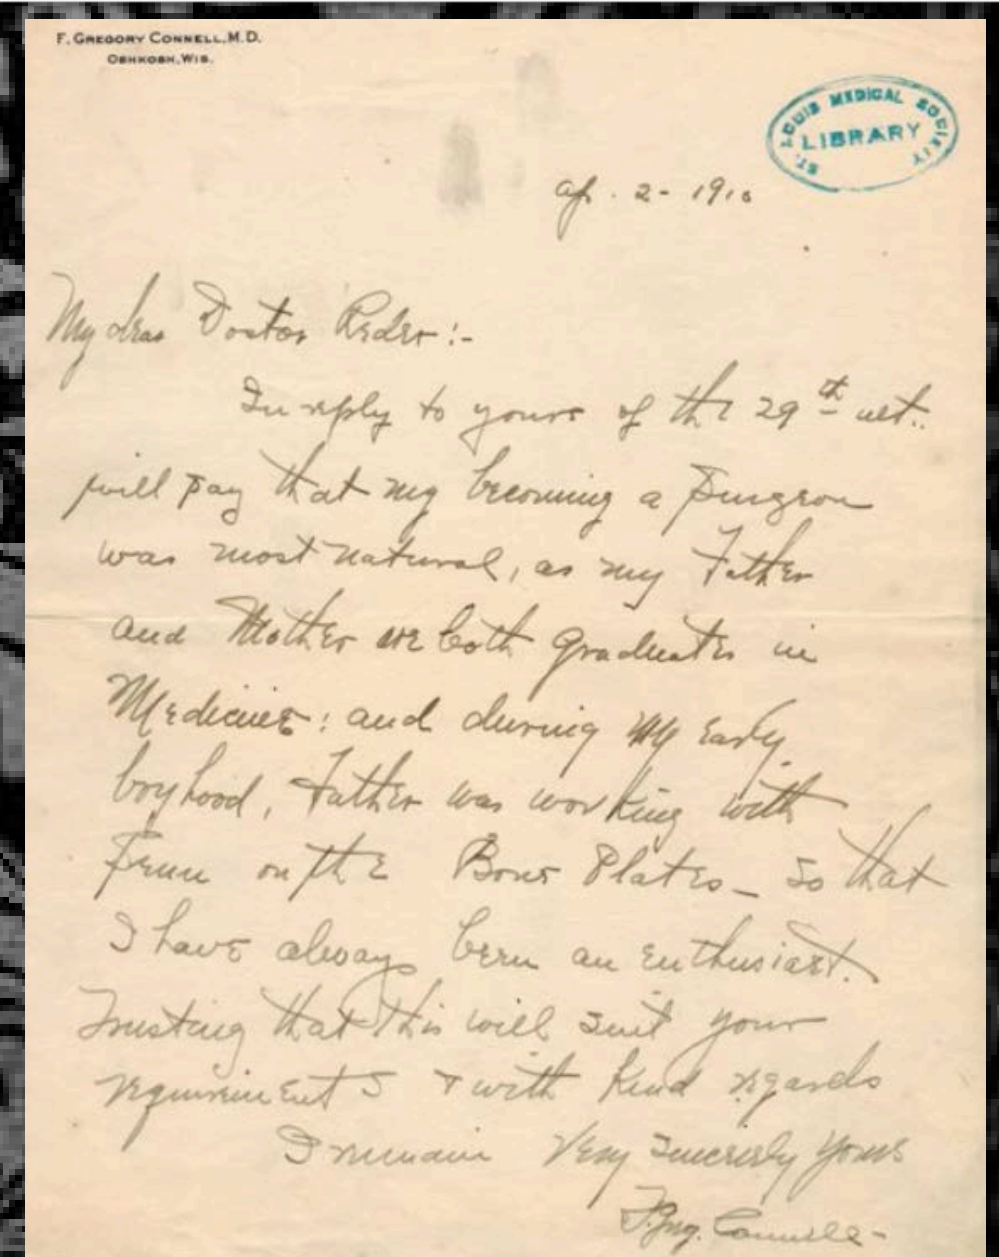 F. GREGORY CONNELL, M.D.
OSHKOSH, WIS.
ST. LOUIS MEDICAL SOCIETY
LIBRARY
Ap. 2 - 1910
My dear Doctor Reder:-
In reply to yours of the 29th ult..
will say that my becoming a Surgeon
was most natural, as my Father
and Mother were both graduates in
Medicine: and during my early
boyhood, Father was working with
Senn on the Bone Plates - So that
I have always been an enthusiast.
Trusting that this will suit your
requirements & with kind regards
I remain Very Sincerely Yours
F. Greg. Connell-